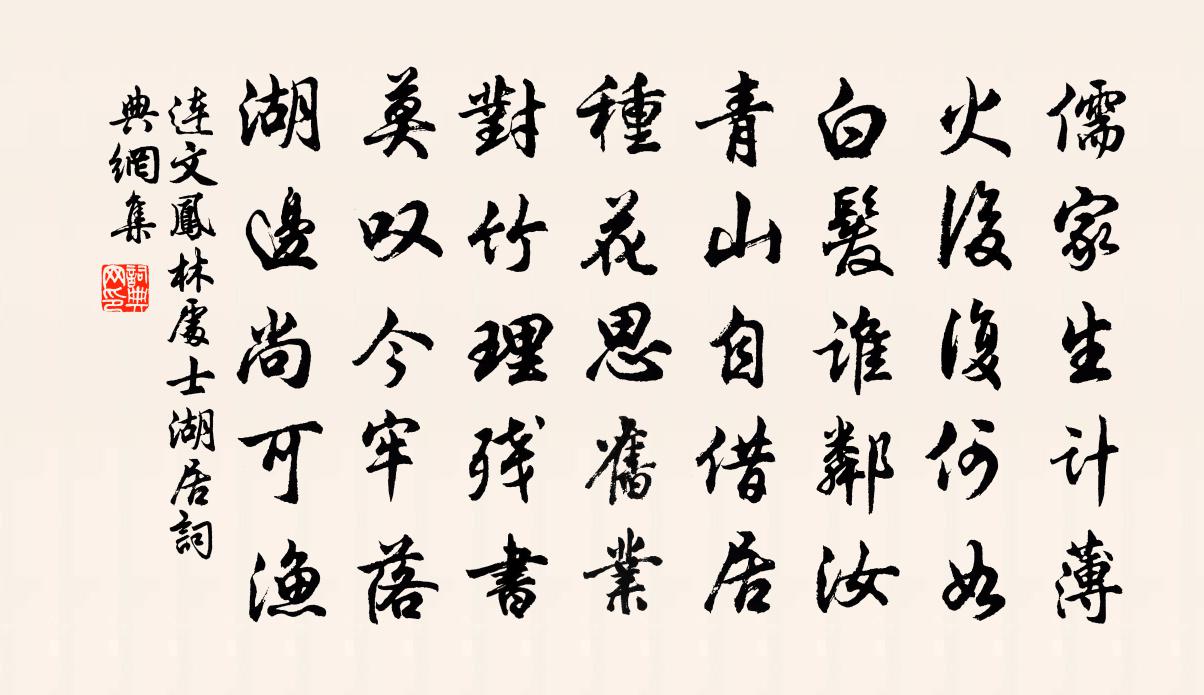 儒家生計薄
火後復何如
白髮誰鄰汝
青山自借居
種花思舊業
對竹理残書
莫叹今牢落
湖邊尚可漁
连文鳳林處士湖居詞
典網集
詞典网印